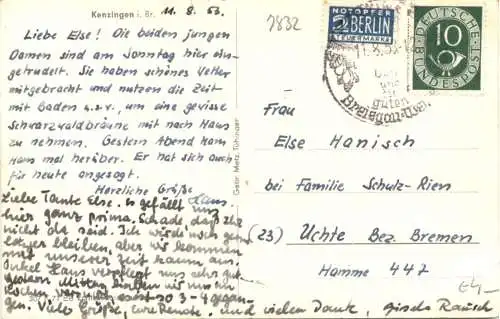 Kenzingen i. Br.
11. 8. 53.
Liebe Else! Die beiden jungen
Damen sind am Sonntag hier ein-
getrudelt. Sie haben schönes Wetter
mitgebracht und nutzen die Zeit
mit Baden u.s.w., um eine gewisse
Schwarzwaldbräune mit nach Haus
zu nehmen. Gestern Abend kam
Hans mal herüber. Er hat sich auch
für heute angesagt.
Herzliche Grüße
Hans.
Liebe Tante Else. Es gefällt uns
hier ganz prima. Schade, daß Ihr
nicht da seid. Ich würde noch gern
länger bleiben, aber wir kommen
mit unserer Zeit kaum aus.
Onkel Hans verpflegt uns sehr gut.
Gestern Mittag
3-4 gegan-
gen. Viele Grüße, Eure Renate. und vielen Dank, Gisela Rausch
7832
NOTOPFER
2 BERLIN
STEUERMARKE
DEUTSCHE
BUNDESPOST
10
guten
Gebr. Metz, Tübingen
Frau
Else Hanisch
bei Familie Schulz-Rien
(23) Uchte Bez. Bremen
Hamme 442
E4,-